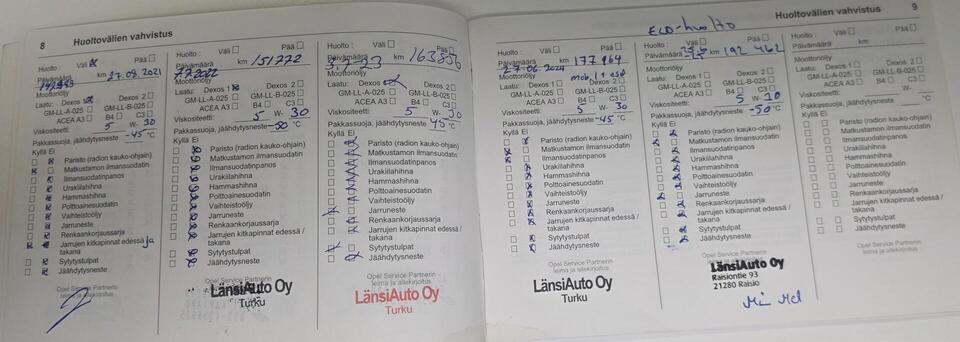 8 Huoltovälien vahvistus
Huolto : Väli Pää
Päivämäärä km 27.09.2021
Moottoriöljy
Laatu: Dexos 1 Dexos 2
GM-LL-A-025 GM-LL-B-025
ACEA A3 B4 C3
Viskositeetti: 5 W- 30
Pakkassuoja, jäähdytysneste -45 °C
Kyllä Ei
Paristo (radion kauko-ohjain)
Matkustamon ilmansuodatin
Ilmansuodatinpanos
Urakiilahihna
Hammashihna
Polttoainesuodatin
Vaihteistoöljy
Jarruneste
Renkaankorjaussarja
Jarrujen kitkapinnat edessä ja
takana
Sytytystulpat
Jäähdytysneste
Opel Service Partnerin
leima ja allekirjoitus
Huolto : Väli Pää
Päivämäärä km 151772
7.7.2022
Moottoriöljy
Laatu: Dexos 1 Dexos 2
GM-LL-A-025 GM-LL-B-025
ACEA A3 B4 C3
Viskositeetti: 5 W- 30
Pakkassuoja, jäähdytysneste -50 °C
Kyllä Ei
Paristo (radion kauko-ohjain)
Matkustamon ilmansuodatin
Ilmansuodatinpanos
Urakiilahihna
Hammashihna
Polttoainesuodatin
Vaihteistoöljy
Jarruneste
Renkaankorjaussarja
Jarrujen kitkapinnat edessä /
takana
Sytytystulpat
Jäähdytysneste
Opel Service Partnerin
leima ja allekirjoitus
LänsiAuto Oy
Turku
Huolto : Väli Pää
Päivämäärä km 163856
3.7.-23
Moottoriöljy
Laatu: Dexos 1 Dexos 2
GM-LL-A-025 GM-LL-B-025
ACEA A3 B4 C3
Viskositeetti: 5 W- 30
Pakkassuoja, jäähdytysneste -45 °C
Kyllä Ei
Paristo (radion kauko-ohjain)
Matkustamon ilmansuodatin
Ilmansuodatinpanos
Urakiilahihna
Hammashihna
Polttoainesuodatin
Vaihteistoöljy
Jarruneste
Renkaankorjaussarja
Jarrujen kitkapinnat edessä /
takana
Sytytystulpat
Jäähdytysneste
Opel Service Partnerin
leima ja allekirjoitus
LänsiAuto Oy
Turku
Huoltovälien vahvistus 9
Huolto : Väli Pää
Päivämäärä km 177964
27.06.2024
Moottoriöljy mobil 1 esp
Laatu: Dexos 1 Dexos 2
GM-LL-A-025 GM-LL-B-025
ACEA A3 B4 C3
Viskositeetti: 5 W- 30
Pakkassuoja, jäähdytysneste -45 °C
Kyllä Ei
Paristo (radion kauko-ohjain)
Matkustamon ilmansuodatin
Ilmansuodatinpanos
Urakiilahihna
Hammashihna
Polttoainesuodatin
Vaihteistoöljy
Jarruneste
Renkaankorjaussarja
Jarrujen kitkapinnat edessä /
takana
Sytytystulpat
Jäähdytysneste
Opel Service Partnerin
leima ja allekirjoitus
LänsiAuto Oy
Turku
ECO-huolto
Huolto : Väli Pää
Päivämäärä km 192462
Moottoriöljy
Laatu: Dexos 1 Dexos 2
GM-LL-A-025 GM-LL-B-025
ACEA A3 B4 C3
Viskositeetti: 5 W-
Pakkassuoja, jäähdytysneste -50 °C
Kyllä Ei
Paristo (radion kauko-ohjain)
Matkustamon ilmansuodatin
Ilmansuodatinpanos
Urakiilahihna
Hammashihna
Polttoainesuodatin
Vaihteistoöljy
Jarruneste
Renkaankorjaussarja
Jarrujen kitkapinnat edessä /
takana
Sytytystulpat
Jäähdytysneste
LänsiAuto Oy
Raisiontie 93
21280 Raisio
Huolto : Väli Pää
Päivämäärä km
Moottoriöljy
Laatu: Dexos 1 Dexos 2
GM-LL-A-025 GM-LL-B-025
ACEA A3 B4 C3
Viskositeetti: W-
Pakkassuoja, jäähdytysneste °C
Kyllä Ei
Paristo (radion kauko-ohjain)
Matkustamon ilmansuodatin
Ilmansuodatinpanos
Urakiilahihna
Hammashihna
Polttoainesuodatin
Vaihteistoöljy
Jarruneste
Renkaankorjaussarja
Jarrujen kitkapinnat edessä /
takana
Sytytystulpat
Jäähdytysneste
Opel Service Partnerin
leima ja allekirjoitus